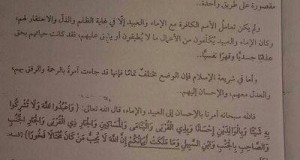 مقصورة على طريق واحدة.
ولم يكن تعامل الأمم الكافرة مع الإماء والعبيد إلا في غاية الظلم والذل والاحتقار لهم،
وكان الإماء والعبيد يكلفون من الأعمال ما لا يطيقون أو يزيد عليهم، فقد كانت حياتهم بحق
جسديًّا وقهرًا نفسيًّا.
وأما في شريعة الإسلام فإن الوضع مختلف تمامًا فإنها قد جاءت آمرة بالرحمة والرفق بهم،
والعدل معهم، والإحسان إليهم.
فالله سبحانه أمرنا بالإحسان إلى العبيد والإماء، قال الله تعالى: ﴿وَاعْبُدُوا اللَّهَ وَلَا تُشْرِكُوا
بِهِ شَيْئًا وَبِالْوَالِدَيْنِ إِحْسَانًا وَبِذِي الْقُرْبَى وَالْيَتَامَى وَالْمَسَاكِينِ وَالْجَارِ ذِي الْقُرْبَى وَالْجَارِ الْجُنُبِ
وَالصَّاحِبِ بِالْجَنْبِ وَابْنِ السَّبِيلِ وَمَا مَلَكَتْ أَيْمَانُكُمْ إِنَّ اللَّهَ لَا يُحِبُّ مَنْ كَانَ مُخْتَالًا فَخُورًا﴾